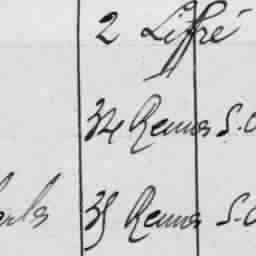 2 Liffré
34 Rennes S.O
35 Rennes S-O